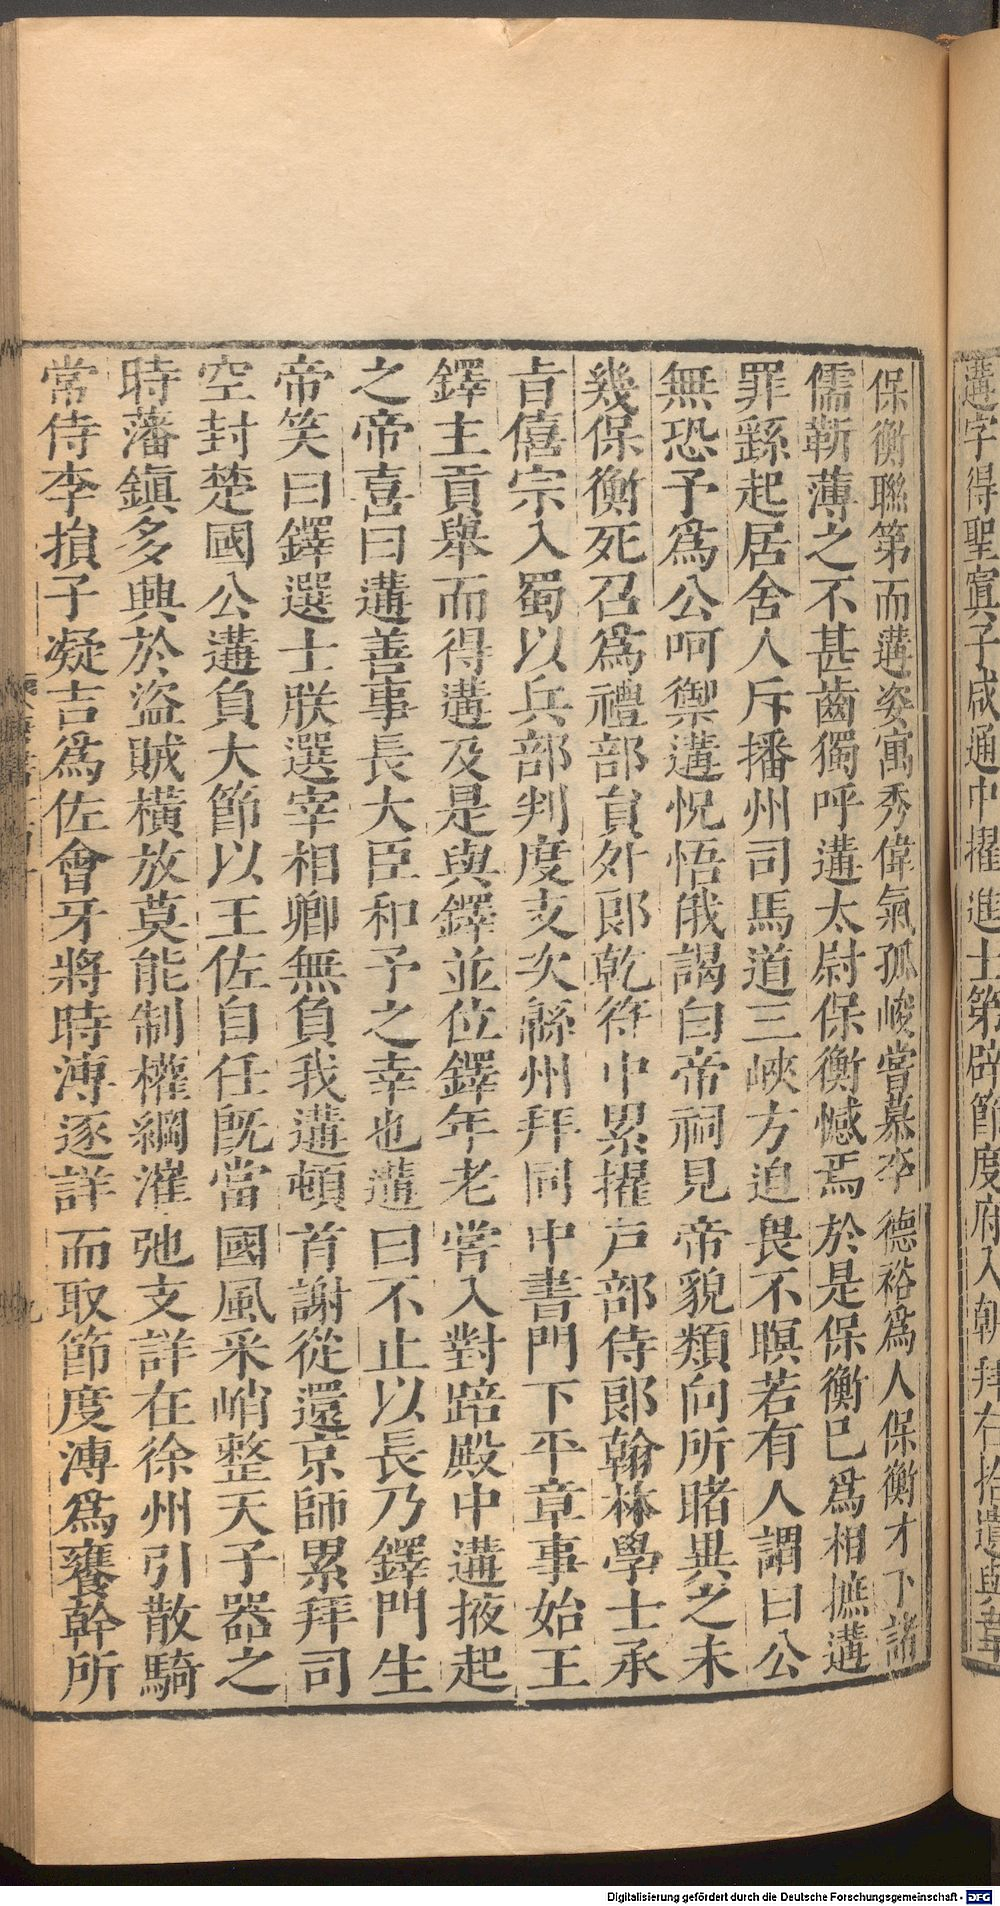 遘字得聖寘子咸通中擢進士第辟節度府入朝拜右拾遺與韋
保衡聯第而遘姿寓秀偉氣孤峻嘗慕李德裕爲人保衡才下諸
儒靳薄之不甚齒獨呼遘太尉保衡憾焉於是保衡巳爲相摭遘
罪繇起居舍人斥播州司馬道三峽方迫畏不瞑若有人謂曰公
無恐予爲公呵禦遘怳悟俄謁白帝祠見帝貌類向所睹異之未
幾保衡死召爲禮部員外郎乾符中累擢戸部侍郎翰林學士承
旨僖宗入蜀以兵部判度支次緜州拜同中書門下平章事始王
鐸主貢舉而得遘及是與鐸並位鐸年老嘗入對踣殿中遘掖起
之帝喜曰遘善事長大臣和予之幸也遘曰不止以長乃鐸門生
帝笑曰鐸選士朕選宰相卿無負我遘頓首謝從還京師累拜司
空封楚國公遘負大節以王佐自任旣當國風采峭整天子器之
時藩鎭多興於盜賊橫放莫能制權綱漼弛支詳在徐州引散騎
常侍李損子凝吉爲佐會牙將時溥逐詳而取節度溥爲饔幹所
九
Digitalisierung gefördert durch die Deutsche Forschungsgemeinschaft - DFG